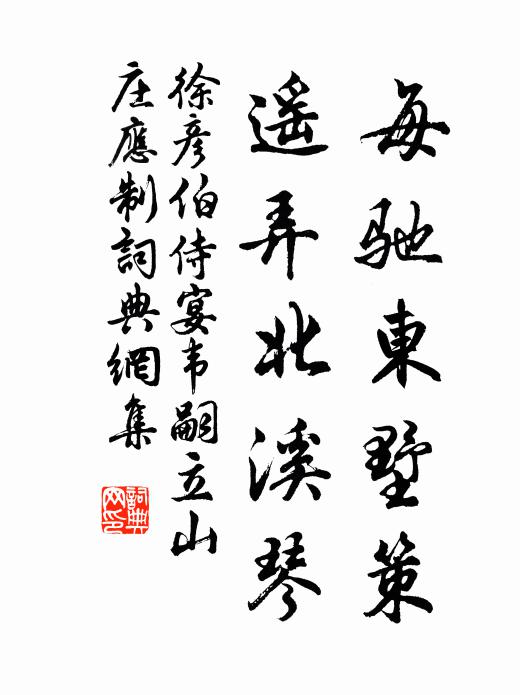 每驰東墅策
遥弄北溪琴
徐彦伯侍宴韦嗣立山
庄應制詞典網集
詞典
网印